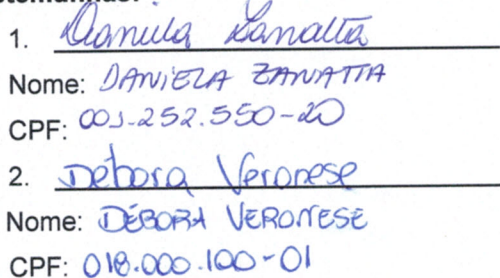 1. Daniela Zanatta
Nome: DANIELA ZANATTA
CPF: 001-252.550-20
2. Débora Veronese
Nome: DÉBORA VERONESE
CPF: 018.000.100-01